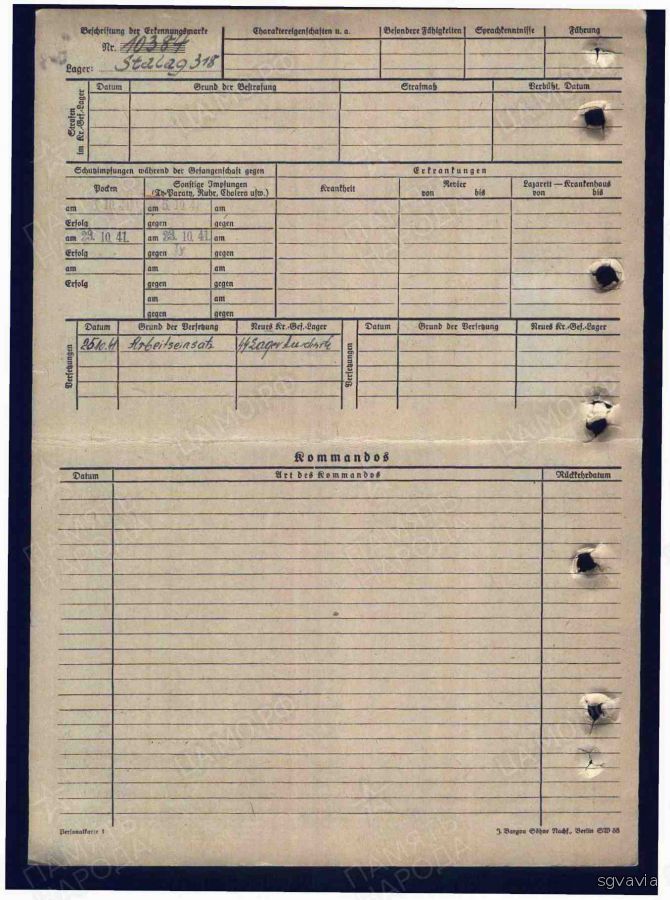 Beschriftung der Erkennungsmarke
Nr. 10384
Lager: Stalag 318
Charaktereigenschaften u. a.
Besondere Fähigkeiten
Sprachkenntnisse
Führung
Strafen im Kr.-Gef.-Lager
Datum
Grund der Bestrafung
Strafmaß
Verbüßt, Datum
Schutzimpfungen während der Gefangenschaft gegen
Erkrankungen
Pocken
Sonstige Impfungen
(Ty-Paraty, Ruhr, Cholera usw.)
Krankheit
Revier
von bis
Lazarett — Krankenhaus
von bis
am am am
Erfolg gegen gegen
am 23. 10. 41. am 23. 10. 41. am
Erfolg gegen gegen
am am am
Erfolg gegen gegen
am am
gegen gegen
Versetzungen
Datum Grund der Versetzung Neues Kr.-Gef.-Lager
25.10.41 Arbeitseinsatz
Versetzungen
Datum Grund der Versetzung Neues Kr.-Gef.-Lager
Kommandos
Datum Art des Kommandos Rückkehrdatum
Personalkarte 1
J. Bargou Söhne Nachf., Berlin SW 68
ПАМЯТЬ
НАРОДА
ЦАМО.РФ
sgvavia